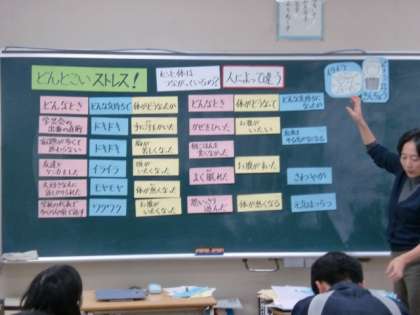 どんとこいストレス！
心と体は
つながっているの？
人によって違う
どんなとき
どんな気持ちで
体がどうなったか
どんなとき
体がどうなって
どんな気持ちに
なったか
学芸会の
出番の直前
ドキドキ
手に汗をかいた
かぜをひいた
お腹が
いたい
宿題が多くて
終わらない
ドキドキ
胸が
苦しくなった
朝ごはんを
友達と
ケンカした
イライラ
頭が
いたくなった
よく眠れた
お腹がすいた
さわやか
モヤモヤ
体が熱くなった
思いっきり
遊んだ
体が熱くなる
元気はつらつ
ワクワク
お腹が
いたくなった